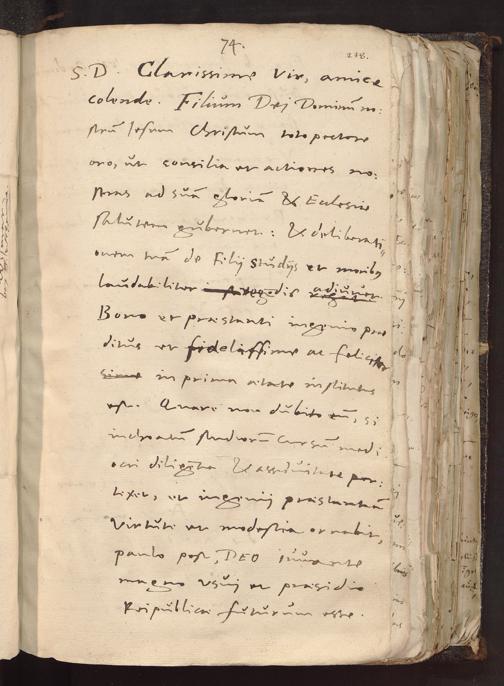 74.
218.
S. D. Clarissime Vir, amice
colende. Filium Dei Dominum no:
strum Iesum Christum toto pectore
oro, ut consilia et actiones no:
stras ad suam gloriam & Ecclesiae
salutem gubernet: & deliberati
onem tuam de Filij studijs et moribus
laudabiliter adiuvet
Bono et praestanti ingenio prae
ditus et fidelissime ac feliciter
sime in prima aetate institutus
est. Quare non dubito eum, si
inchoatum studiorum cursum medi
ocri diligentia & assiduitate per:
texet, et ingenij praestantiam
virtute et modestia ornabit,
paulo post, DEO iuvante
magno usui et praesidio
Reipublicae futurum esse.